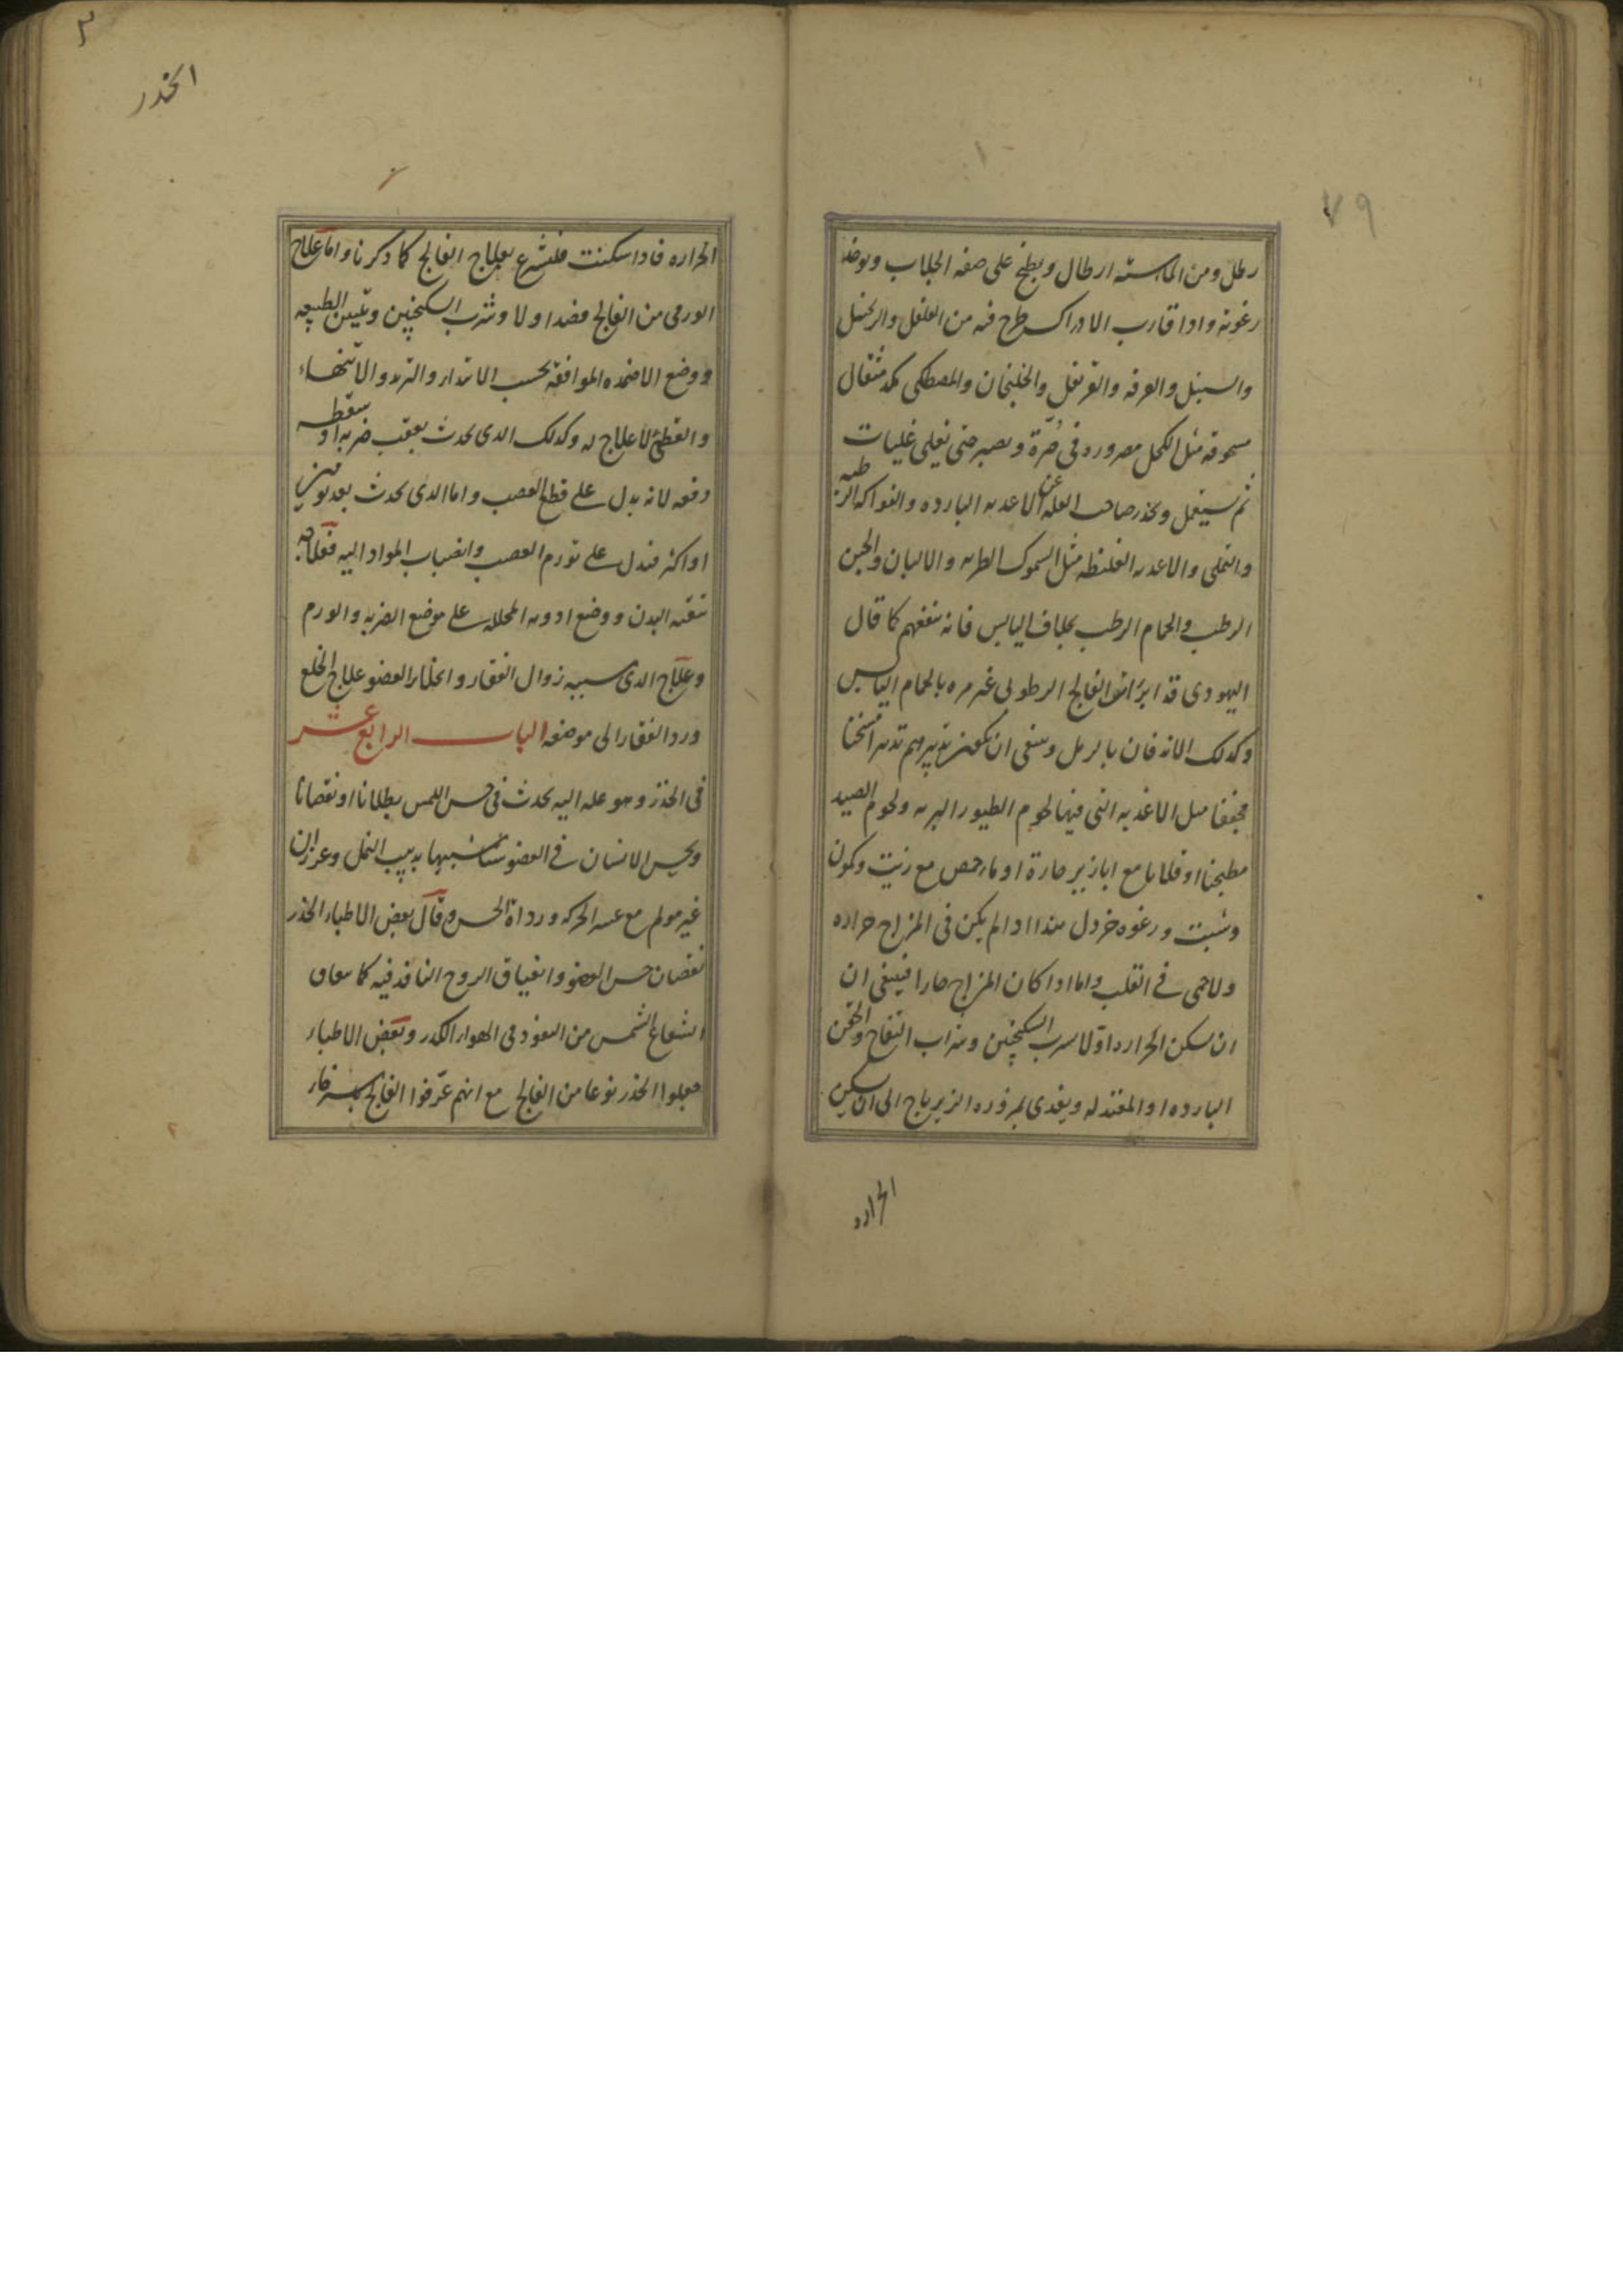 ٧٩
رطل ومن الماء سته ارطال ويطبخ على صفه الجلاب ويوخذ
رغوته واذا قارب الادراك طرح فيه من الفلفل والزنجبيل
والسنبل والقرفه والقرنفل والخلنجان والمصطكى مثقال
مسحوقه مثل الكحل مصروره فى صرّة ويصبر حتى تغلى غليات
ثم يستعمل ويحذر صاحب العله عن الاغديه البارده والفواكه الرطبه
والبقلى والاغديه الغليظه مثل السموك الطريه والالبان والجبن
الرطب والحمام الرطب بخلاف اليابس فانه ينفعهم كما قال
اليهودى قد ابرات الفالج الرطوبى غير مره بالحمام اليابس
وكدلك الاندفان بالرمل وينبغى ان يكون تدبيرهم تدبيرا مسخنا
مجففا مثل الاغديه التى فيها لحوم الطيور البريه ولحوم الصيد
مطبخنا او قلايا مع ابازير حارة او ماء حمص مع زيت وكمون
وشبت ورغوه خردل هذا ادا لم يكن فى المزاج حراره
ولا حمى فى القلب واما ادا كان المزاج حارا فينبغى ان
ان يسكن الحراره اوّلا بشرب السكنجبين وشراب التفاح والحقن
البارده او المعتدله ويغدى بمزوره الزيرباج الى ان يسكن
الحراره
الخدر
الحراره فادا سكنت فليشرع بعلاج الفالج كما دكرنا واما علاج
الورمى من الفالج فصد اولا وشرب السكنجبين وتليين الطبيعه
ووضع الاضمده الموافقه بحسب الابتداء والتزيد والانتهاء
والقطعى لا علاج له وكدلك الدى يحدث بعقب ضربه او سقطه
دفعه لانه يدل على قطع العصب واما الدى يحدث بعد يومين
او اكثر فيدل على تورم العصب وانصباب المواد اليه فعلاجه
تنقيه البدن ووضع ادويه المحلله على موضع الضربه والورم
وعلاج الدى سببه زوال الفقار وانخلاع العضو علاج الخلع
ورد الفقار الى موضعه الباب الرابع عشر
فى الخدر وهو عله اليه تحدث فى حس اللمس بطلانا او نقصانا
ويحس الانسان فى العضو شبيها بدبيب النمل وغرزان
غير مولم مع عسر الحركه ورداة الحس وقال بعض الاطباء الخدر
نقصان حس العضو وانعياق الروح النافذ فيه كما يعاق
الشعاع الشمس من النفود فى الهواء الكدر وبعض الاطباء
جعلوا الخدر نوعا من الفالج مع انهم عرّفوا الفالج